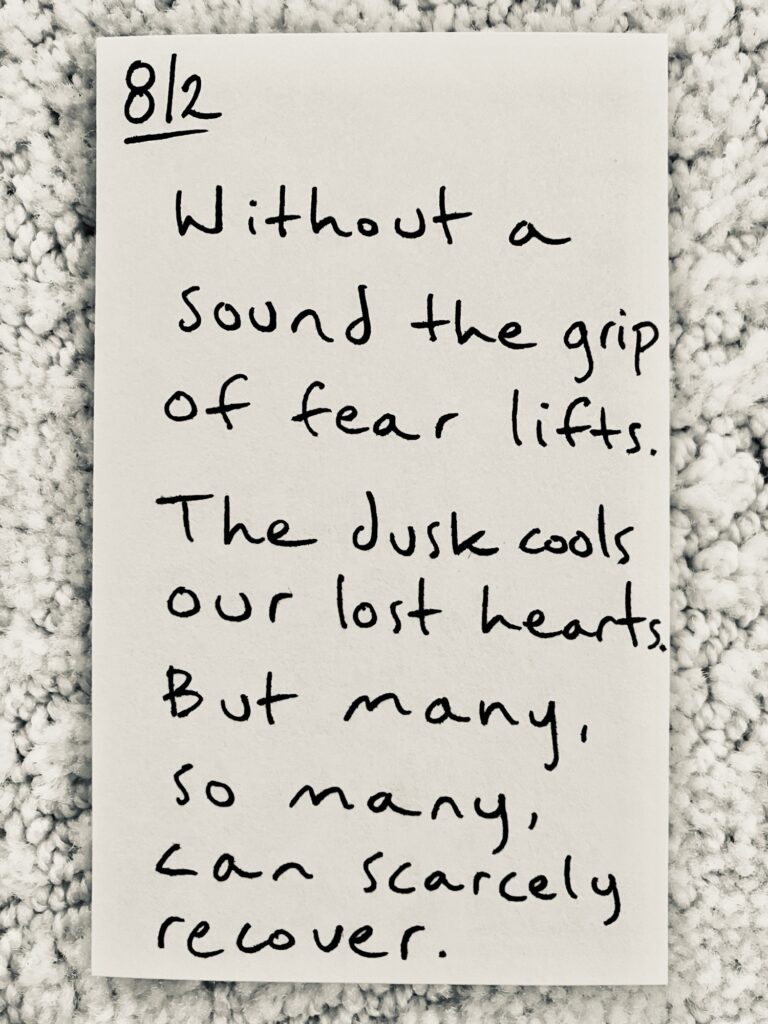 8/2
Without a
sound the grip
of fear lifts.
The dusk cools
our lost hearts.
But many,
so many,
can scarcely
recover.